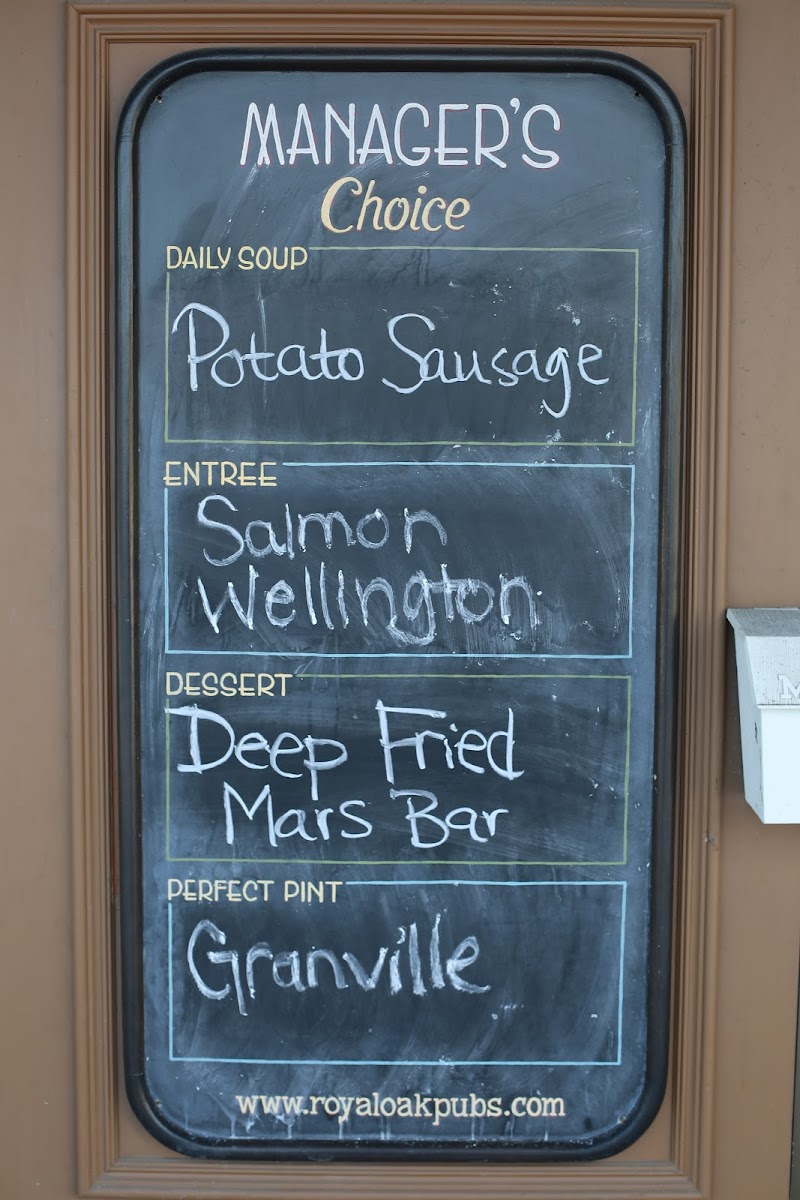 MANAGER'S
Choice
DAILY SOUP
Potato Sausage
ENTREE
Salmon
Wellington
DESSERT
Deep Fried
Mars Bar
PERFECT PINT
Granville
www.royaloakpubs.com